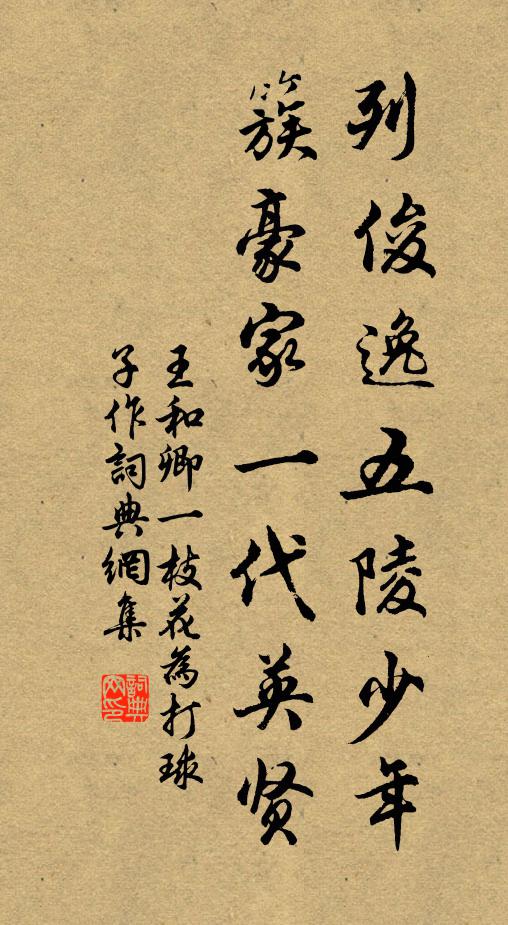 列俊逸五陵少年
簇豪家一代英贤
王和卿一枝花為打球
子作詞典網集
詞典網印